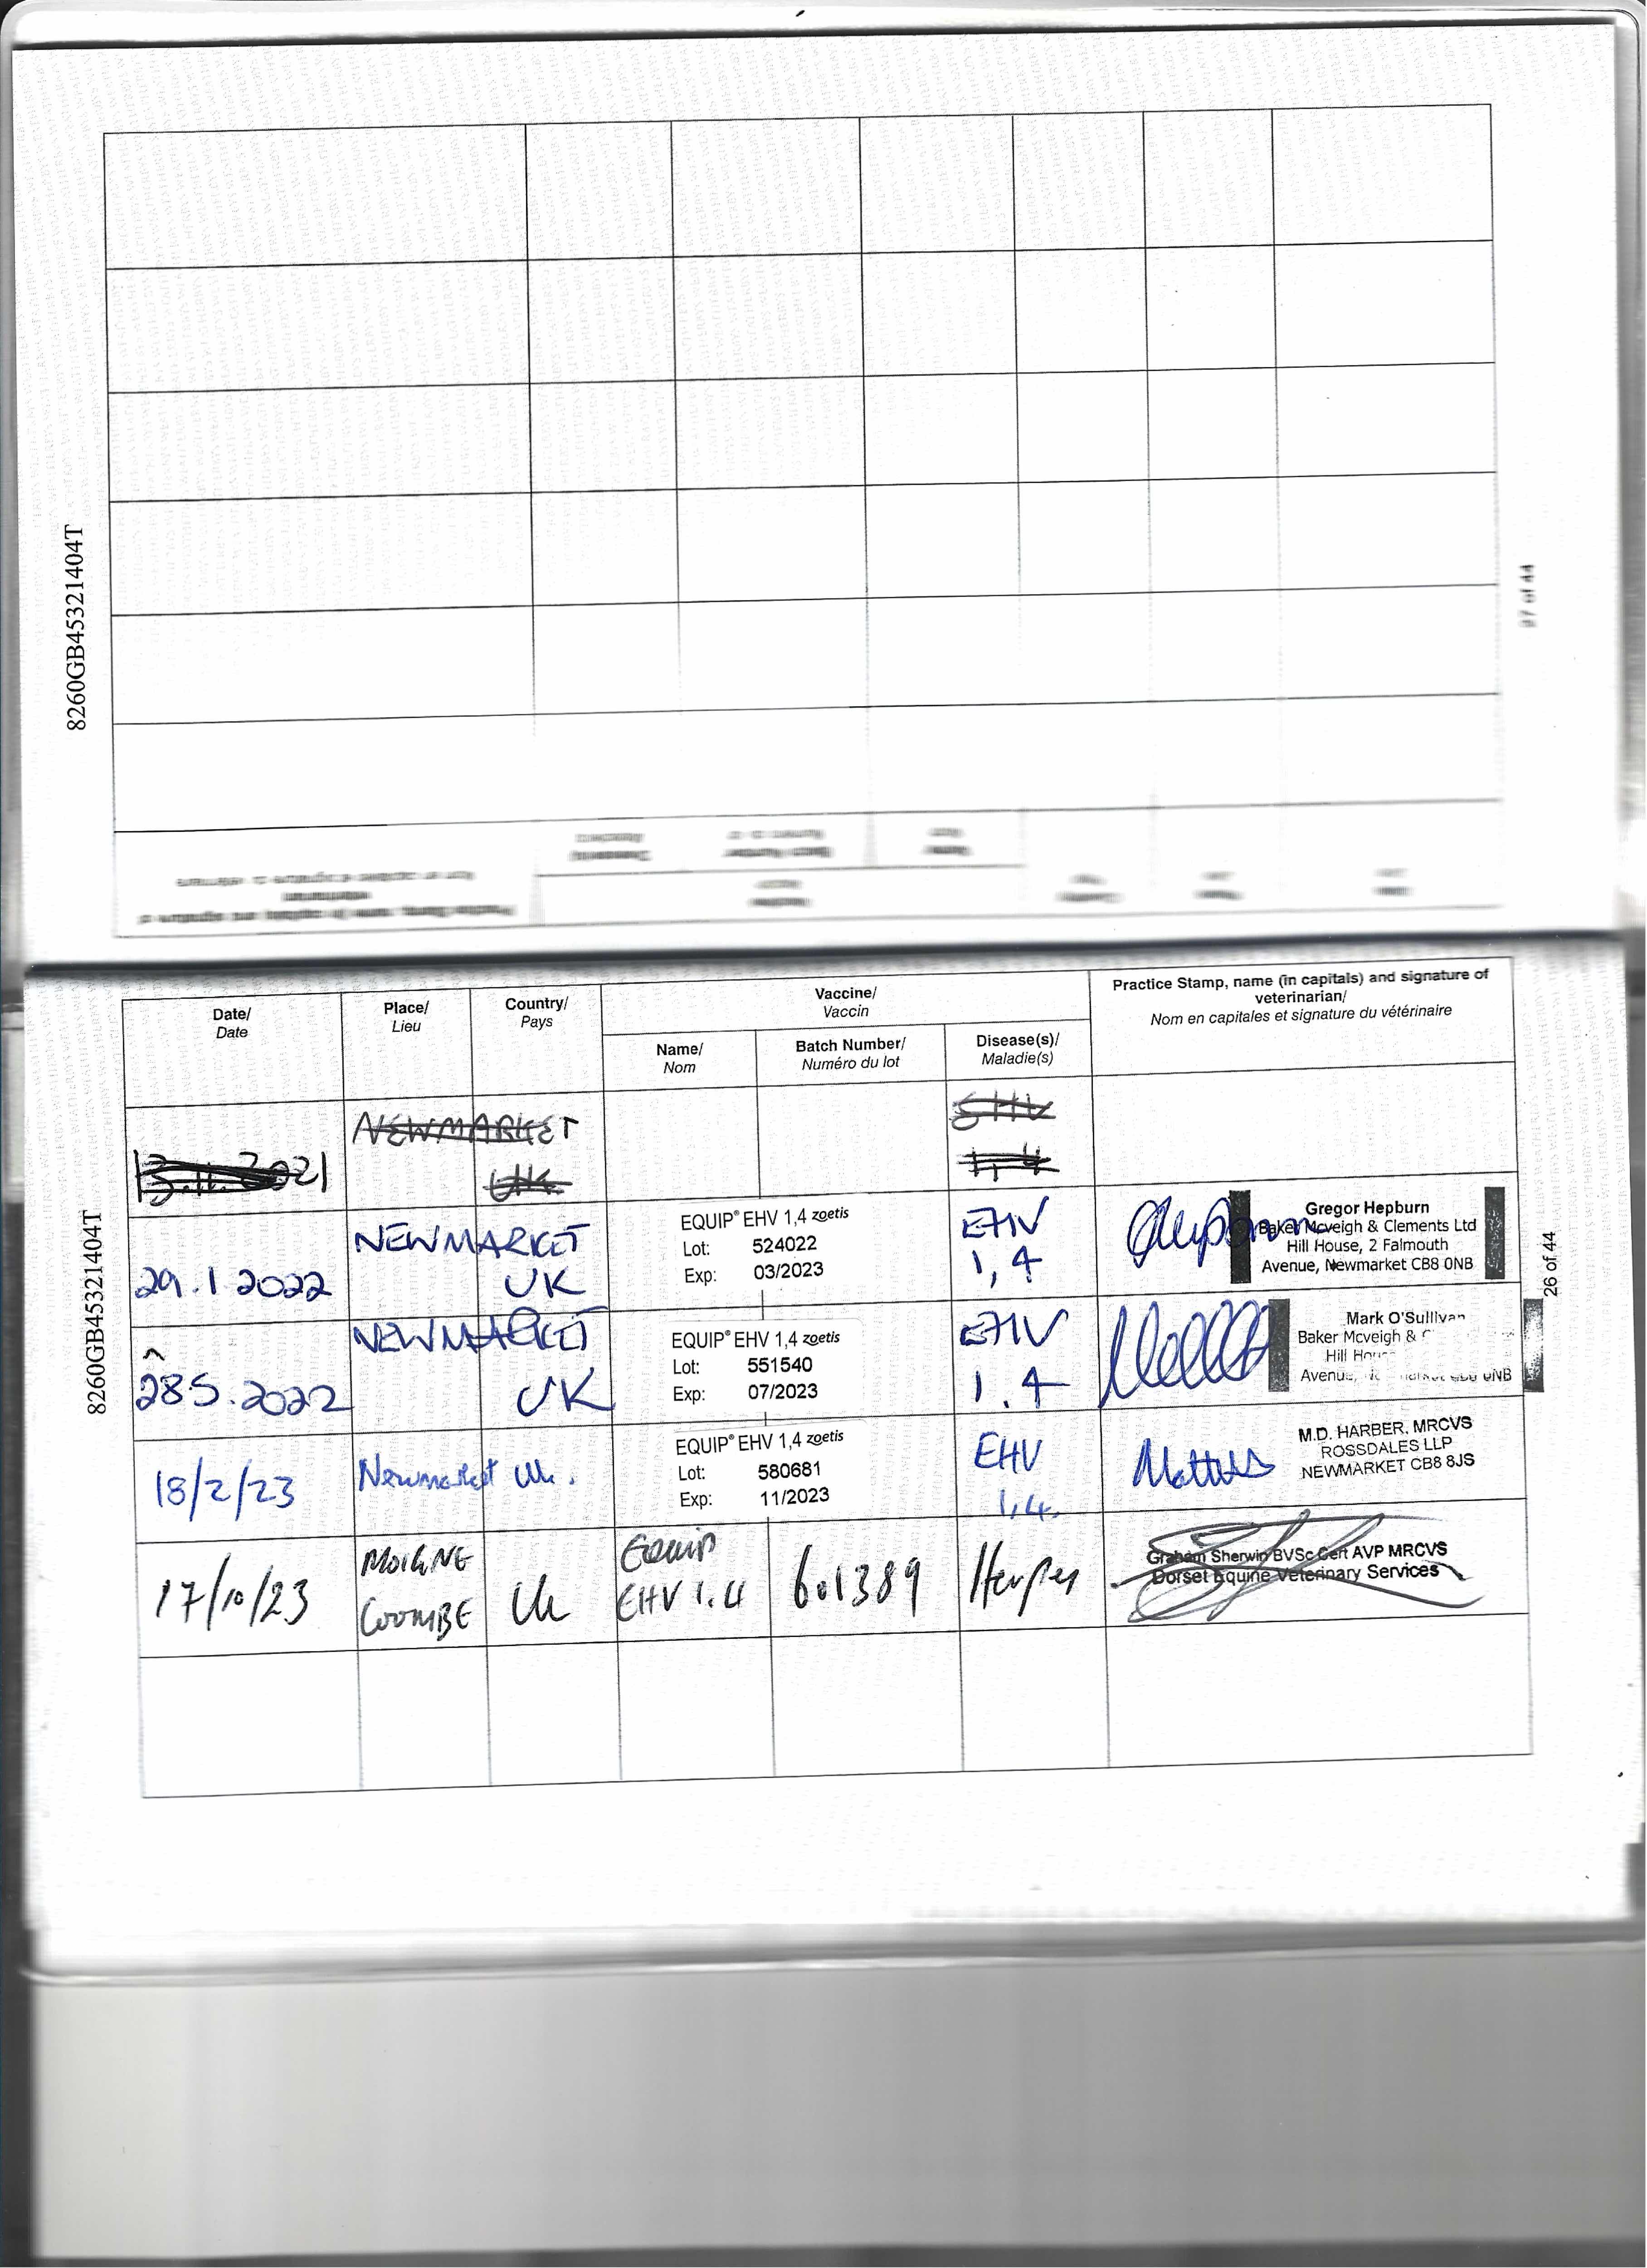 8260GB45321404T
27 of 44
Date/
Date
Place/
Lieu
Country/
Pays
Vaccine/
Vaccin
Name/
Nom
Batch Number/
Numéro du lot
Disease(s)/
Maladie(s)
Practice Stamp, name (in capitals) and signature of
veterinarian/
Nom en capitales et signature du vétérinaire
13.11.2021
NEWMARKET
UK
EHV
1,4
29.1.2022
NEWMARKET
UK
EQUIP® EHV 1,4 zoetis
Lot: 524022
Exp: 03/2023
EHV
1,4
Gregor Hepburn
Baker Mcveigh & Clements Ltd
Hill House, 2 Falmouth
Avenue, Newmarket CB8 0NB
28.5.2022
NEWMARKET
UK
EQUIP® EHV 1,4 zoetis
Lot: 551540
Exp: 07/2023
EHV
1.4
Mark O'Sullivan
Baker Mcveigh &
Hill
18/2/23
Newmarket
Uk.
EQUIP® EHV 1,4 zoetis
Lot: 580681
Exp: 11/2023
EHV
1,4.
M.D. HARBER, MRCVS
ROSSDALES LLP
NEWMARKET CB8 8JS
17/10/23
MOIGNE
COOMBE
Uk
EQUIP
EHV 1.4
601389
Herpes
Graham Sherwin BVSc Cert AVP MRCVS
Dorset Equine Veterinary Services
8260GB45321404T
26 of 44